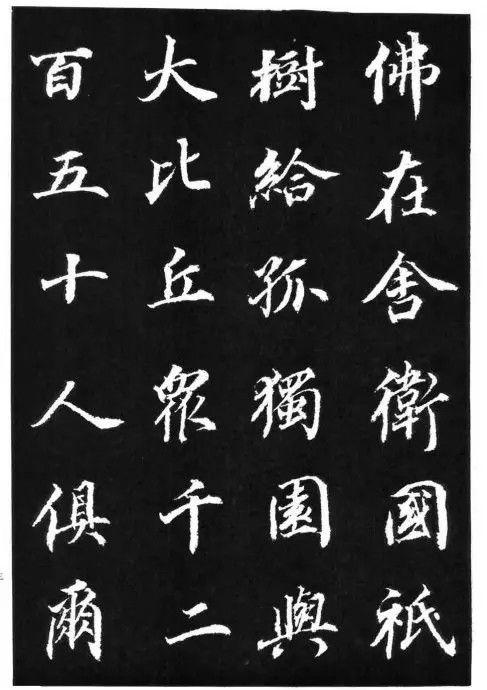 佛在舍衛國祇
樹給孤獨園與
大比丘眾千二
百五十人俱爾